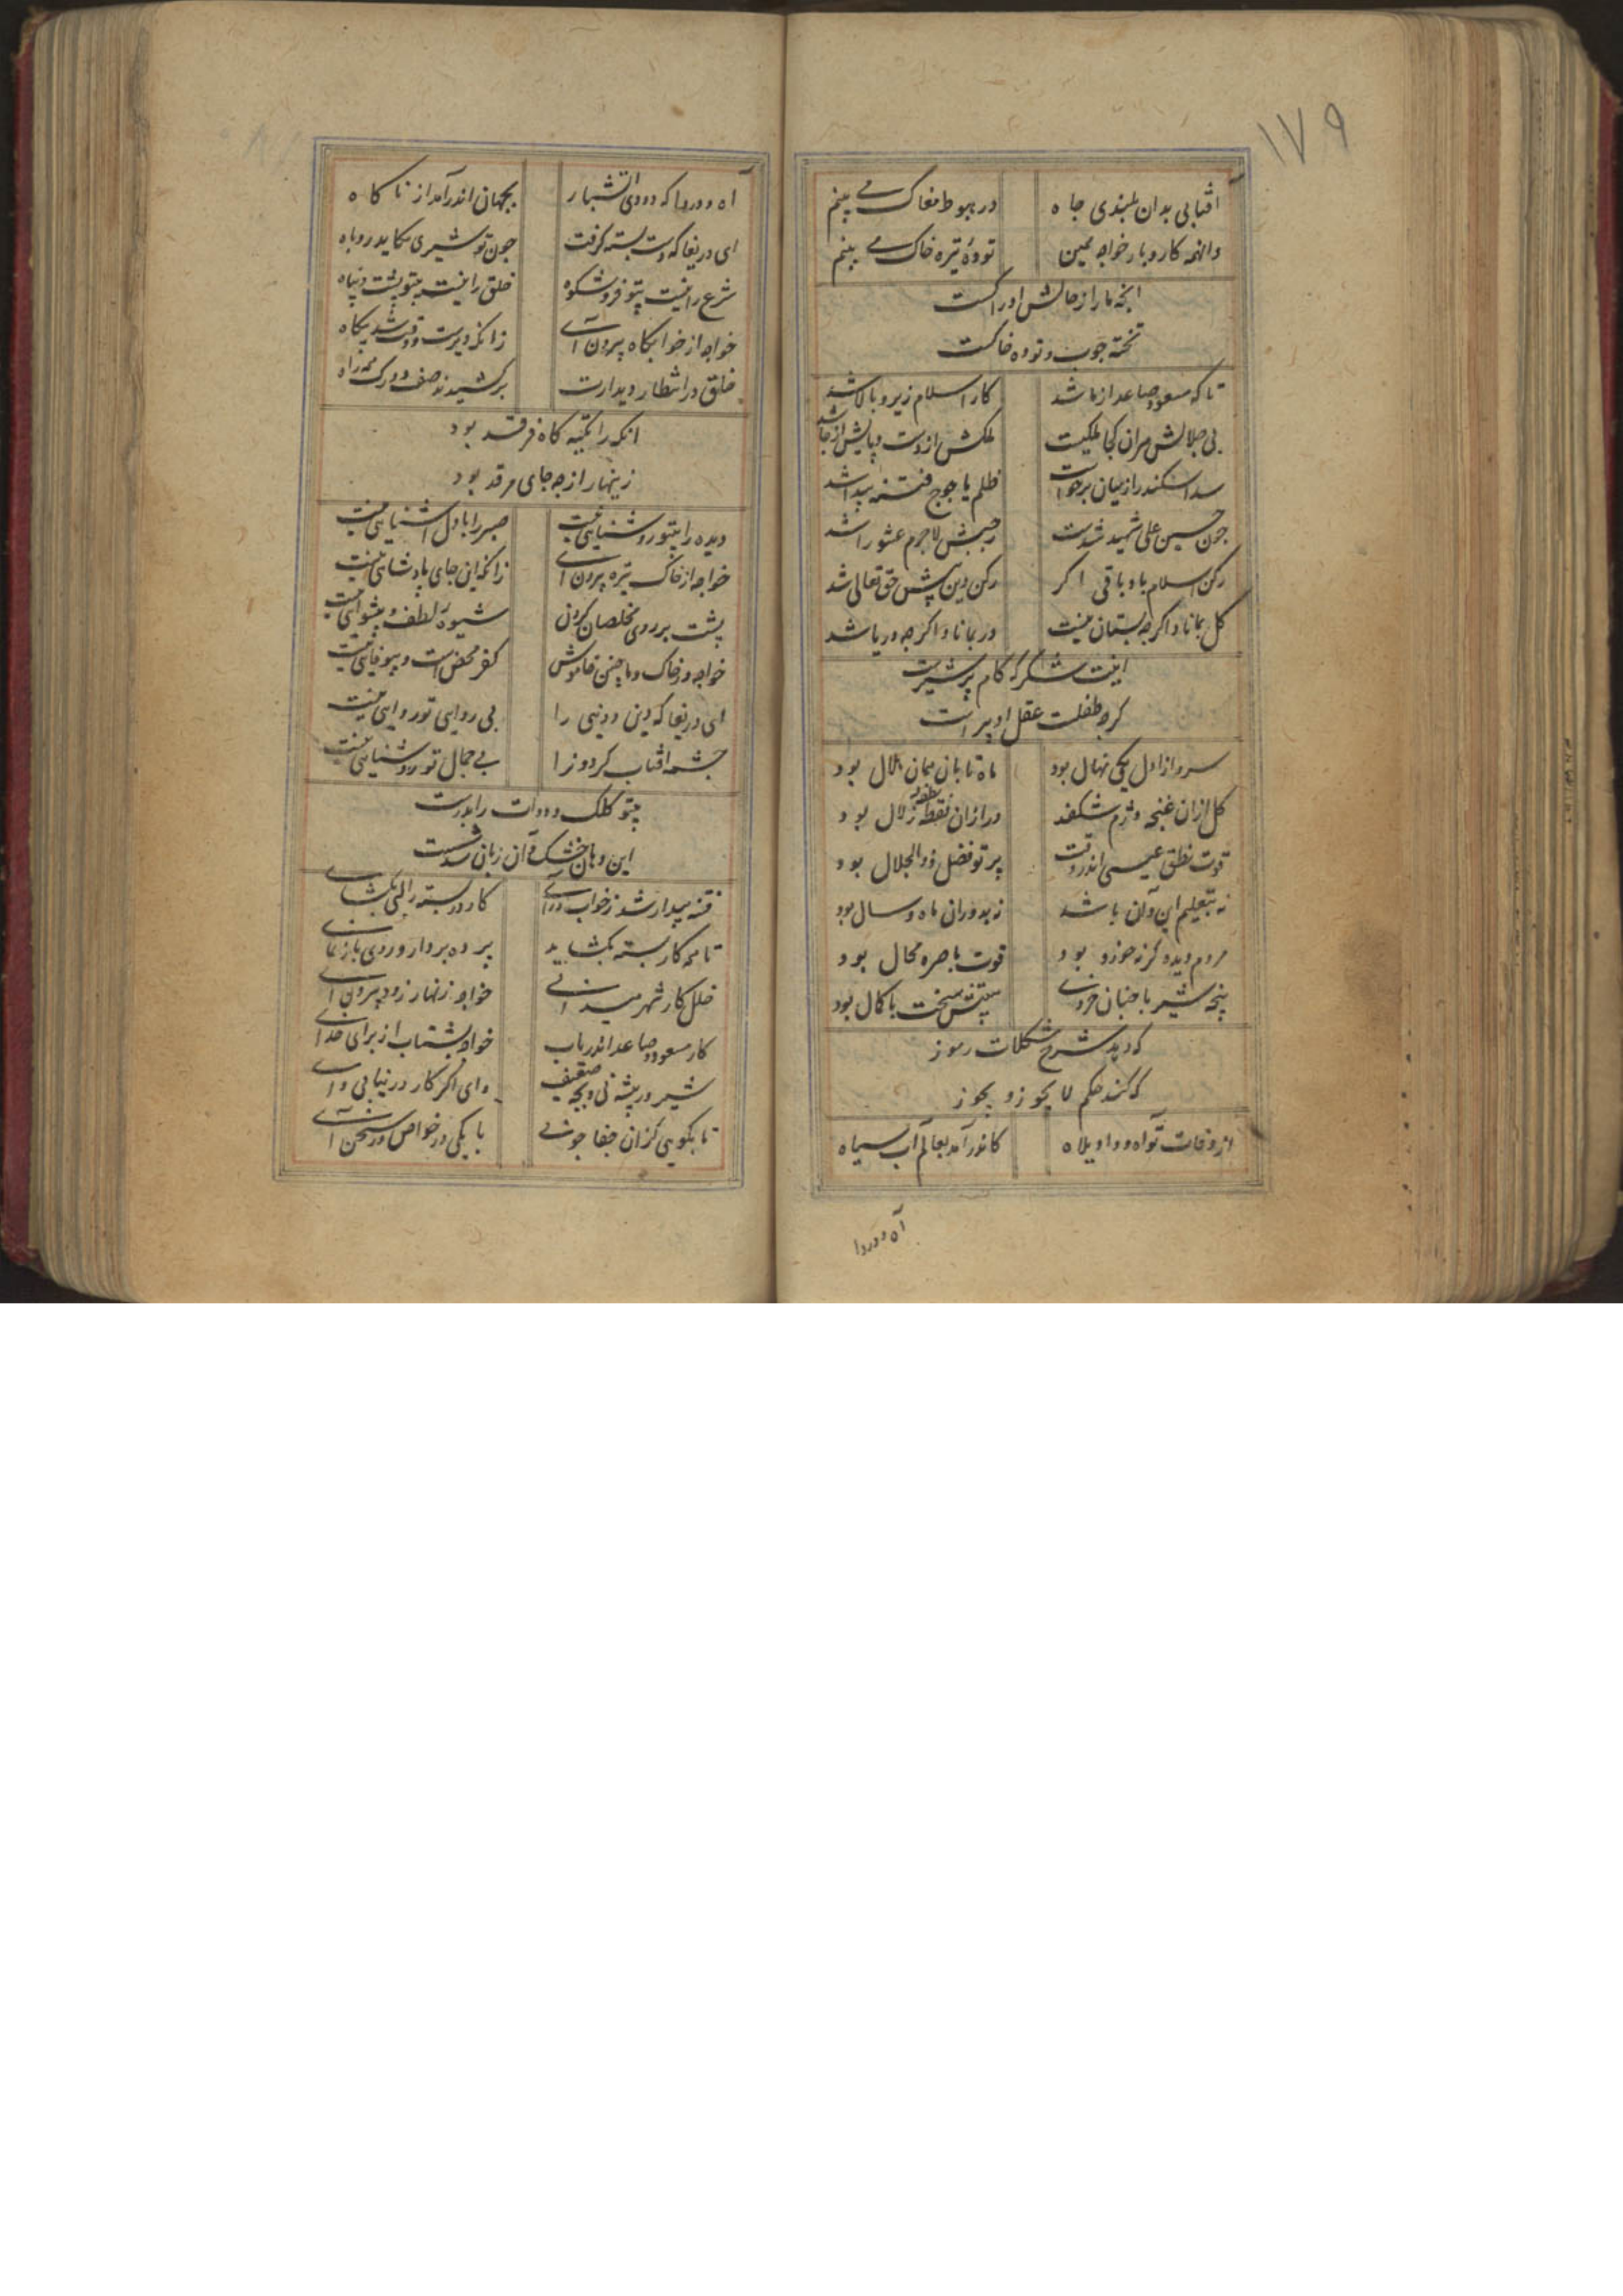 ۱۷۹
آفتابی بدان بلندی جاه در هبوط مغاک می بینم
وانهمه کار و بار خواجه همین توده تیره خاک می بینم
انچه ما را ز حالش ادراکست
تخته چوب و توده خاکست
تا که مسعود صاعد از ما شد کار اسلام زیر و بالا شد
بی جلالش مران کجا ملکیت ملکش از دست و پایش از جا شد
سد اسکندر از میان برخواست ظلم یاجوج فتنه پیدا شد
چون حسین علی شهید شدست رجبش لاجرم عشورا شد
رکن اسلام باد باقی اگر رکن دین پیش حق تعالی شد
گل بماناد اگر چه بستان نیست در بماناد اگر چه دریا شد
اینت شکر که کام پر شیرست
گرچه طفلست عقل او پیر است
سرو از اول یکی نهال بود ماه تابان همان هلال بود
گل ازان غنچه دژم شکفد در ازان نقطه زلال بود
قطره
قوت نطق عیسی اندر وقت پرتو فضل ذوالجلال بود
نه بتعلیم این و آن باشد نه بدوران ماه و سال بود
مردم دیده گر نه خرد بود قوت باصره محال بود
پنجه شیر با چنان خردی سیتش سخت با کمال بود
که دهد شرح مشکلات رموز
که کند حکم لا یجوز و یجوز
از وفات تو آه و واویلاه کاندر آمد بعالم آب سیاه
آه و دردا
آه و دردا که دودی آتشبار بجهان اندر آمد از ناگاه
ای دریغا که دست بسته گرفت چون تو شیری مکاید روباه
شرع را نیست بیتو فر و شکوه خلق را نیست بیتو پشت و پناه
خواجه از خوابگاه بیرون آی زانکه دیرست و وقت شد بیگاه
خلق در انتظار دیدارت برکشیدند صف دو رک همه راه
انکه را تکیه گاه فرقد بود
زینهار از چه جای مرقد بود
دیده را بیتو روشنایی نیست صبر را با دل آشنایی نیست
خواجه از خاک تیره بیرون آی زانکه این جای پادشاهی نیست
پشت بر روی مخلصان کردن شیوه لطف و پیشوایی نیست
خواجه در خاک و ما چنین خاموش کفر محض است و بیوفایی نیست
ای دریغا که دین و دنیی را بی روای تو روایی نیست
چشمه آفتاب گردون را بی جمال تو روشنایی نیست
بیتو کلک و دوات را بدرست
این دهان خشک و آن زبان شدست
فتنه بیدار شد ز خواب درآی کار در بسته را کمی بگشای
تا همه کار بسته بگشاید پرده بردار و روی باز نمای
خلل کار شهر میدانی خواجه زنهار زود بیرون آی
کار مسعود صاعد اندریاب خواجه بشتاب از برای خدای
شیر در بیشه نی و بچه ضعیف وای اگر کار در نیابی وای
تا بگویی کزان جفا جویی با یکی در خواص در سخن آی